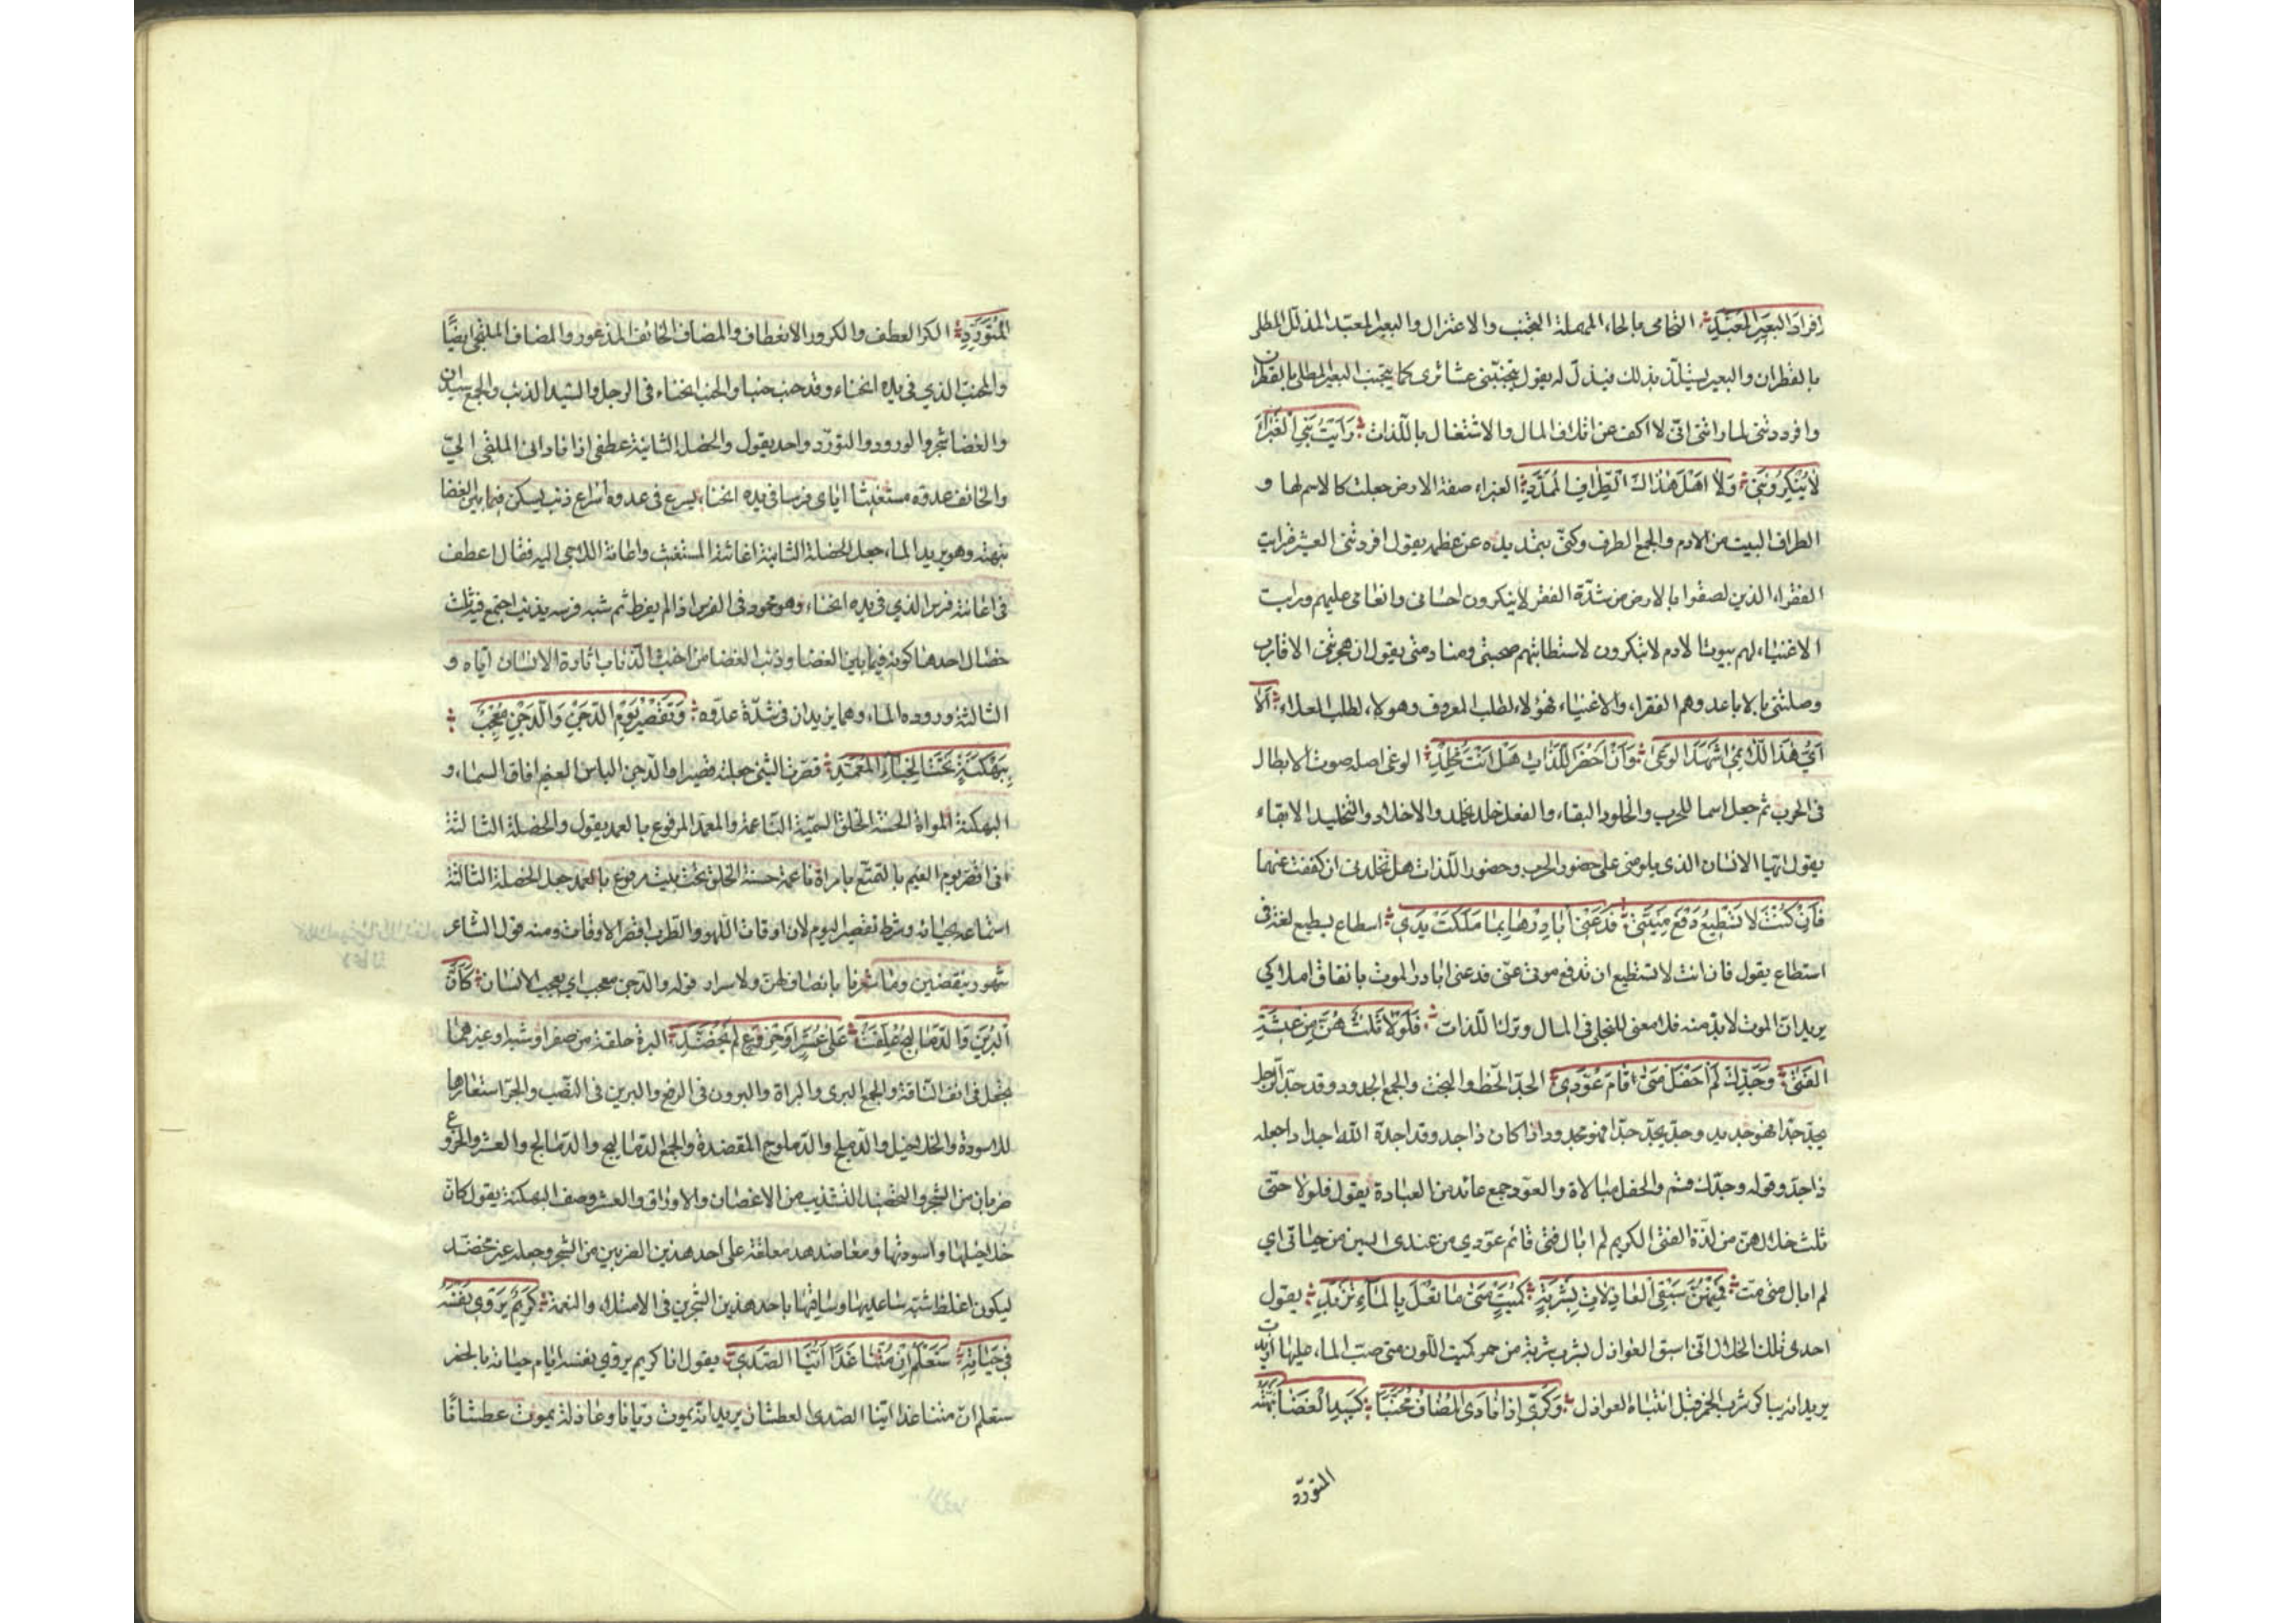 افراد البعير المعبد التحامى بالحاء المهملة التجنب والاعتزال والبعير المعبد المذلل المطلى
بالقطران والبعير يستلذ بذلك فيذل له يقول تجنبتنى عشائرى كما يتجنب البعير المطلى بالقطران
وافردتنى لما راتنى انى لا اكف عن اتلاف المال والاشتغال باللذات رَاَيْتُ بَنِى الْغَبْرَاءَ
لاٰ يُنْكِرُونَنِى وَلاٰ اَهْلَ هٰذَاكَ الطِّرَافِ الْمُمَدَّدِ الغبراء صفة الارض جعلت كالاسم لها و
الطراف البيت من الادم والجمع الطرف وكنى بتمديده عن عظمه يقول افردتنى العشيرة رايت
الفقراء الذين لصقوا بالارض من شدة الفقر لا ينكرون احسانى وانعامى عليهم ورايت
الاغنياء لهم بيوت الادم لا ينكرون لاستطابتهم صحبتى ومنادمتى يقول ان هجرتنى الاقارب
وصلتنى بالاباعد وهم الفقراء والاغنياء فهؤلاء لطلب المعروف وهولاء لطلب العلاء اَلاٰ
اَىُّ هٰذَا اللائِمِى اَشْهَدُ الوَغٰى وَاَنْ اَحْضُرَ اللَّذَّاتِ هَلْ اَنْتَ مُخْلِدِى الوغى اصله صوت الابطال
فى الحرب ثم جعل اسما للحرب والخلود البقاء والفعل خلد يخلد والاخلاد والتخليد الابقاء
يقول ايها الانسان الذى يلومنى على حضور الحرب وحضور اللذات هل تخلدنى ان كففت عنهما
فَاِنْ كُنْتَ لا تَسْطِيعُ دَفْعَ مَنِيَّتِى فَدَعْنِى اُبَادِرْهٰا بِمٰا مَلَكَتْ يَدِى اسطاع يسطيع لغة فى
استطاع يقول فان انت لا تستطيع ان تدفع موتى عنى فدعنى ابادر الموت بانفاق املاكى
يريد ان الموت لا بد منه فلا معنى للبخل فى المال وترك اللذات فَلَوْلاٰ ثَلٰثٌ هُنَّ مِنْ عِيشَةِ
الفَتٰى وَجَدِّكَ لَمْ اَحْفَلْ مَتٰى قٰامَ عُوَّدِى الجد الحظ والبخت والجمع الجدود وقد جد الرجل
يجد جدا فهو جديد وجد يجد جدا فهو مجدود اذا كان ذا جد وقد اجده الله اجدادا جعله
ذا جد وقوله وجدك قسم والحفل مبالاة والعود جمع عائد من العيادة يقول فلولا حتى
ثلث خلال هن من لذة الفتى الكريم لم ابال متى قام عودى من عندى ايسين من حياتى اى
لم ابال متى مت فَمِنْهُنَّ سَبْقِى العٰاذِلاٰتِ بِشَرْبَةٍ كُمَيْتٍ مَتٰى مٰا تُعْلَ بِالْمٰآءِ تُزْبِدِ يقول
احدى تلك الخلال انى اسبق العواذل بشرب شربة من خمر كميت اللون متى صب الماء عليها ازبدت
يريد انه يباكر شرب الخمر قبل انتباه العواذل وَكَرِّى اِذٰا نٰادَى الْمُضٰافُ مُحَنَّبًا كَسِيدِ الْغَضٰا نَبَّهْتَهُ
المتورّد
الْمُتَوَرِّدِ الكر العطف والكرور الانعطاف والمضاف الخائف المذعور والمضاف الملتجى ايضًا
والمحنب الذي فى يده انحناء وقد حنب حنبا والحنب انحناء فى الرجل والسيد الذئب والجمع سيدان
والغضا شجر والورود والتورد واحد يقول والخصلة الثانية عطفى اذا نادانى الملتجى الىّ
والخائف عدوه مستغيثا اياى فرسا فى يده انحناء يسرع فى عدوه اسراع ذئب يسكن فيما بين الغضا
نبهته وهو يريد الماء جعل الخصلة الثانية اغاثة المستغيث واعانة اللاجى اليه فقال اعطف
فى اغاثته فرسى الذي فى يده انحناء وهو محمود فى الفرس اذا لم يفرط ثم شبه فرسه بذئب اجتمع فيه ثلث
خصال احدها كونه فيما بين الغضا وذئب الغضا من اخبث الذئاب اثارة الانسان اياه و
الثالثة وروده الماء وهما يزيدان فى شدة عدوه وَتَقْصِيرُ يَوْمِ الدَّجْنِ وَالدَّجْنُ مُعْجِبٌ
بِبَهْكَنَةٍ تَحْتَ الخِبٰآءِ الْمُعَمَّدِ قصرت الشئ جعلته قصيرا والدجن الباس الغيم افاق السماء و
البهكنة المراة الحسنة الخلق السمينة الناعمة والمعمد المرفوع بالعمد يقول والخصلة الثالثة
انى اقصر يوم الغيم بالتمتع بامراة ناعمة حسنة الخلق تحت بيت مرفوع بالعمد جعل الخصلة الثالثة
استمتاعه بحبائبه وشرط تقصير اليوم لان اوقات اللهو والطرب اقصر الاوقات ومنه قول الشاعر
شهور ينقضين وما شعرنا بانصاف لهن ولا سرار قوله والدجن معجب اى يعجب الانسان كَاَنَّ
الْبُرِينَ وَالدَّمٰالِيجَ عُلِّقَتْ عَلٰى عُشَرٍ اَوْ خِرْوَعٍ لَمْ يُخَضَّدِ البرة حلقة من صفر او شبه او غيرهما
تجعل فى انف الناقة والجمع البرى والبراة والبرون فى الرفع والبرين فى النصب والجر استعارها
للاسورة والخلاخيل والدملج والدملوج المعضدة والجمع الدماليج والدمالج والعشر والخروع
ضربان من الشجر والتخضيد التشذيب من الاغصان والاوراق والعشر وصف البهكنة يقول كان
خلاخيلها واسورتها ومعاضدها معلقة على احد هذين الضربين من الشجر وجعله غير مخضد
ليكون اغلظ شبه ساعديها وساقيها باحد هذين الشجرين فى الامتلاء والنعمة كَرِيمٌ يُرَوِّى نَفْسَهُ
فى حَيٰاتِهِ سَتَعْلَمُ اِنْ مُتْنٰا غَدًا اَيُّنَا الصَّدِى يقول انا كريم يروى نفسه ايام حياته بالخمر
ستعلم ان متنا غدا اينا الصدى العطشان يريد انه يموت ريانا وعاذله يموت عطشانًا